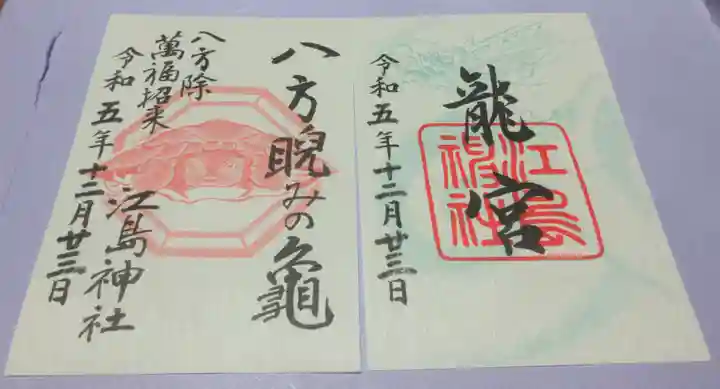 龍宮
江島神社
令和五年十二月廿三日
八方睨みの亀
八方除
萬福招来
令和五年十二月廿三日
江島神社